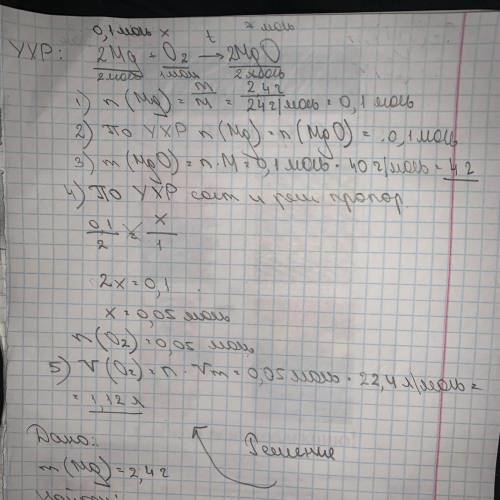 0,1 моль x ? моль
УХР: 2Mg + O2 →t 2MgO
2 моль 1 моль 2 моль
1) n(Mg) = m/M = 2,4 г / 24 г/моль = 0,1 моль
2) По УХР n(Mg) = n(MgO) = 0,1 моль
3) m(MgO) = n · M = 0,1 моль · 40 г/моль = 4 г
4) По УХР сост и реш пропор.
0,1/2 = x/1
2x = 0,1
x = 0,05 моль
n(O2) = 0,05 моль
5) V(O2) = n · Vm = 0,05 моль · 22,4 л/моль =
= 1,12 л
Дано:
Решение
m(Mg) = 2,4 г